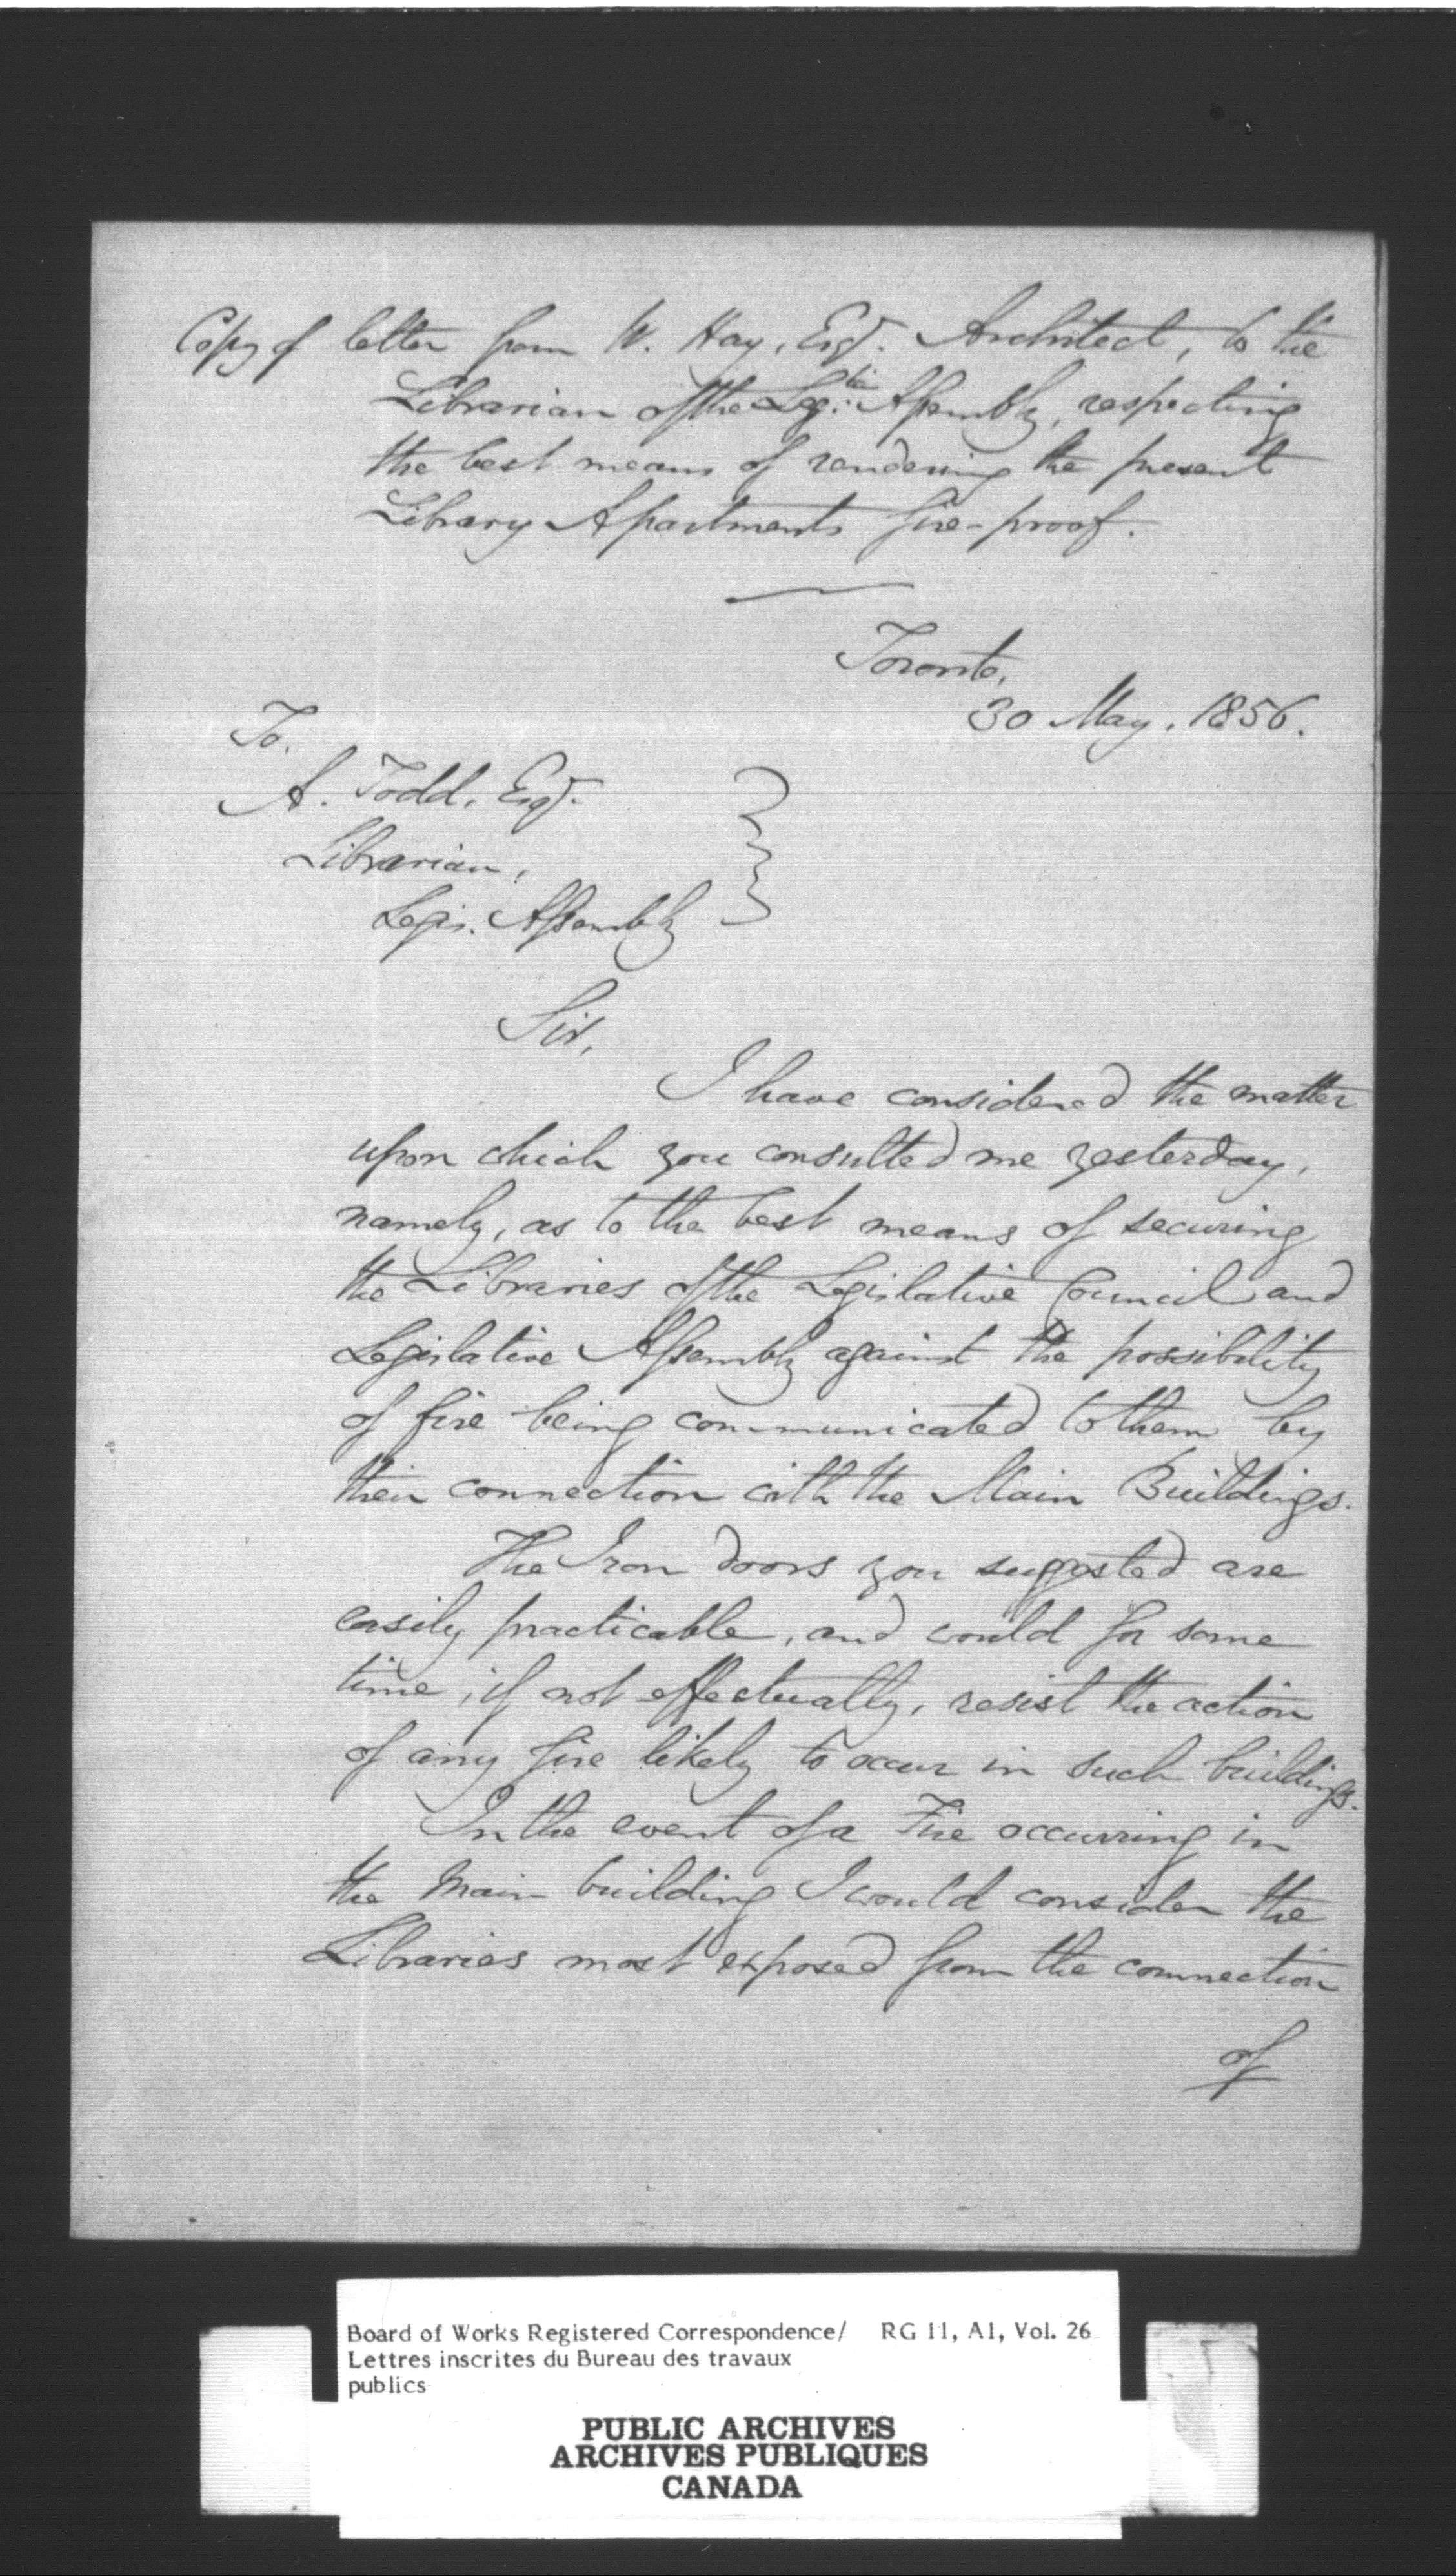 Copy of letter from W. Hay, Esqr. Architect, to the
Librarian of the Leg:tive Assembly, respecting
the best means of rendering the present
Library Apartments fire-proof.
Toronto,
30 May. 1856.
To.
A. Todd, Esqr.
Librarian,
Legis. Assembly
Sir,
I have considered the matter
upon which you consulted me yesterday,
namely, as to the best means of securing
the Libraries of the Legislative Council and
Legislative Assembly against the possibility
of fire being communicated to them by
their connection with the Main Buildings.
The Iron doors you suggested are
easily practicable, and would for some
time, if not effectually, resist the action
of any fire likely to occur in such buildings.
In the event of a Fire occurring in
the Main building I would consider the
Libraries most exposed from the connection
of
Board of Works Registered Correspondence/ RG 11, A1, Vol. 26
Lettres inscrites du Bureau des travaux
publics
PUBLIC ARCHIVES
ARCHIVES PUBLIQUES
CANADA